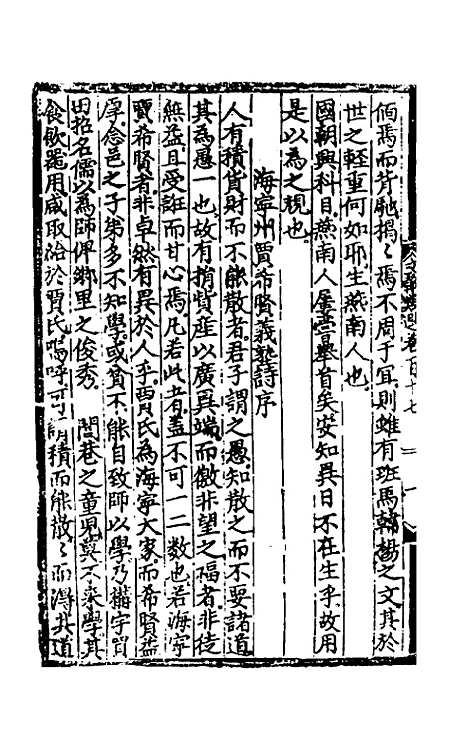 偭焉而背馳揭揭焉不周于宜則雖有班馬韓楊之文其於
世之輕重何如耶生燕南人也
國朝興科目燕南人屢嘗舉首矣安知異日不在生乎故用
是以為之規也
海寧州賈希賢義塾詩序
人有積貨財而不能散者君子謂之愚知散之而不要諸道
其為愚一也故有捐貲產以廣異端而儌非望之福者非徒
無益且受誑而甘心焉凡若此者蓋不可一二數也若海寧
賈希賢者非卓然有異於人乎賈氏為海寧大家而希賢益
厚念邑之子弟多不知學或貧不能自致師以學乃搆宇買
田招名儒以為師俾鄉里之俊秀 閭巷之童兒莫不來學其
食飲器用咸取洽於賈氏嗚呼可謂積而能散散而得其道
卷一百十七